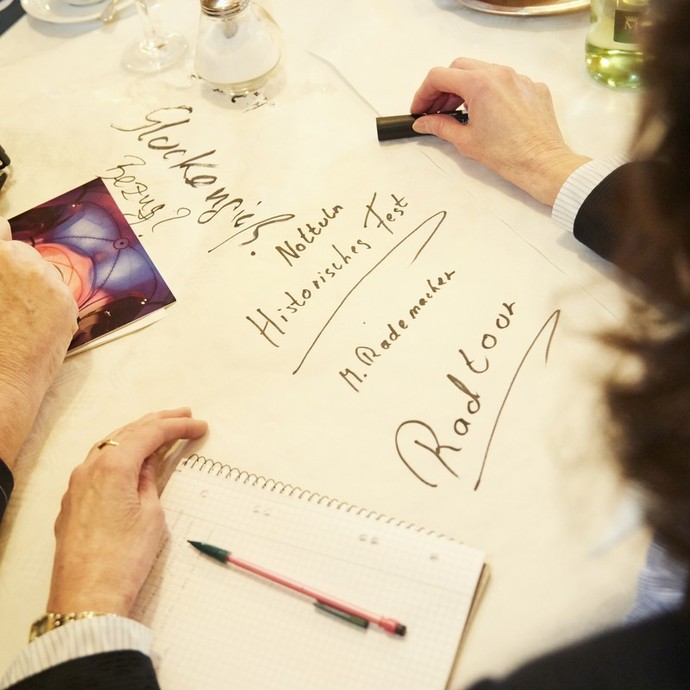 Glockengieß.
Bezug?
Nottuln
Historisches Fest
M. Rademacher
Radtour